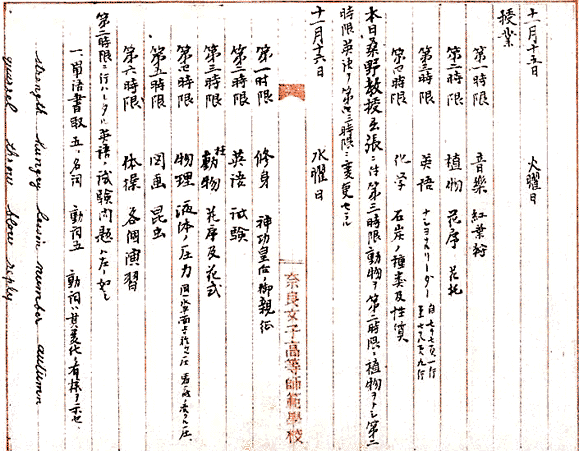 十一月十五日 火曜日
授業
第一時限 音樂 紅葉狩
第二時限 植物 花序 花托
第三時限 英語 ナショナルリーダー
第四時限 化学 石炭ノ種類及性質
本日桑野教授出張ニ付第三時限動物ヲ第二時限ニ植物ヲトシ第二
時限英語ヲ第三時限ニ変更セル
十一月十六日 水曜日
第一时限 修身 神功皇后ノ御親征
第二時限 英语 试験
第三時限 植物 花序及花式
第四時限 物理 液体ノ圧力
第五時限 図画 昆虫
第六時限 体操 各個演習
第二時限ニ行ハレタル英語ノ試験問題ハ左ノ如シ
一、單语書取 五、名詞 動詞五 動詞ハ其変化ヲ有様ヲ示セ
strength hungry basin number autumn
quarrel throw blow reply
奈良女子高等師範學校